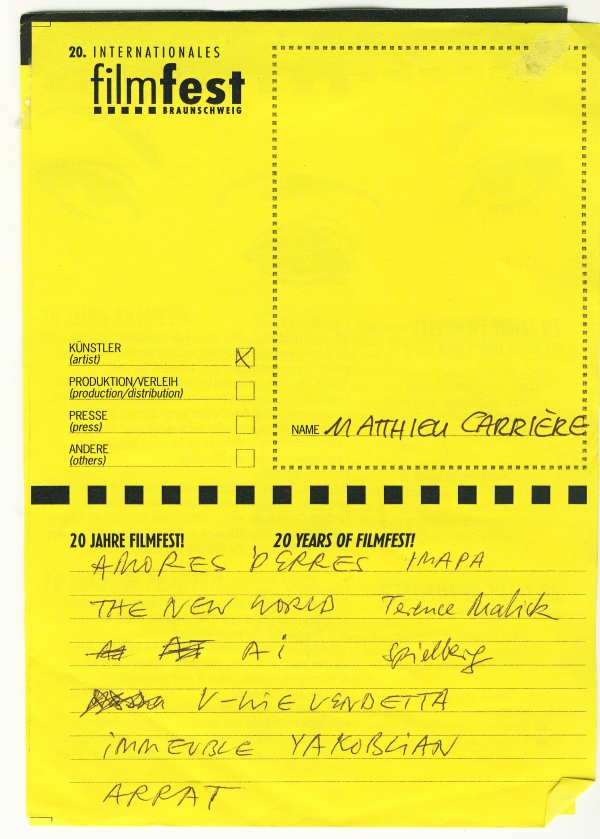 20. INTERNATIONALES
filmfest
BRAUNSCHWEIG
KÜNSTLER
(artist)
PRODUKTION/VERLEIH
(production/distribution)
PRESSE
(press)
ANDERE
(others)
NAME MATTHIEU CARRIÈRE
20 JAHRE FILMFEST! 20 YEARS OF FILMFEST!
AMORES PERRES IMAPA
THE NEW WORLD Terence Malick
Ai Spielberg
V-WIE VENDETTA
iMMEUBLE YAKOBLIAN
ARRAT